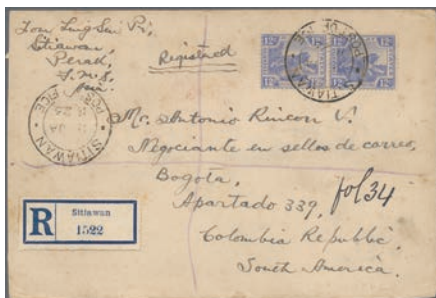 From Ling Sui Pi,
Sitiawan,
Perak,
F.M.S.
Asia.
Registered
12c 12c
SITIAWAN
POST OFFICE
SITIAWAN
POST OFFICE
Mr. Antonio Rincon V.
Negociante en sellos de correo,
Bogota,
Apartado 339,
fol 34
Colombia Republic,
South America.
R
Sitiawan
1522